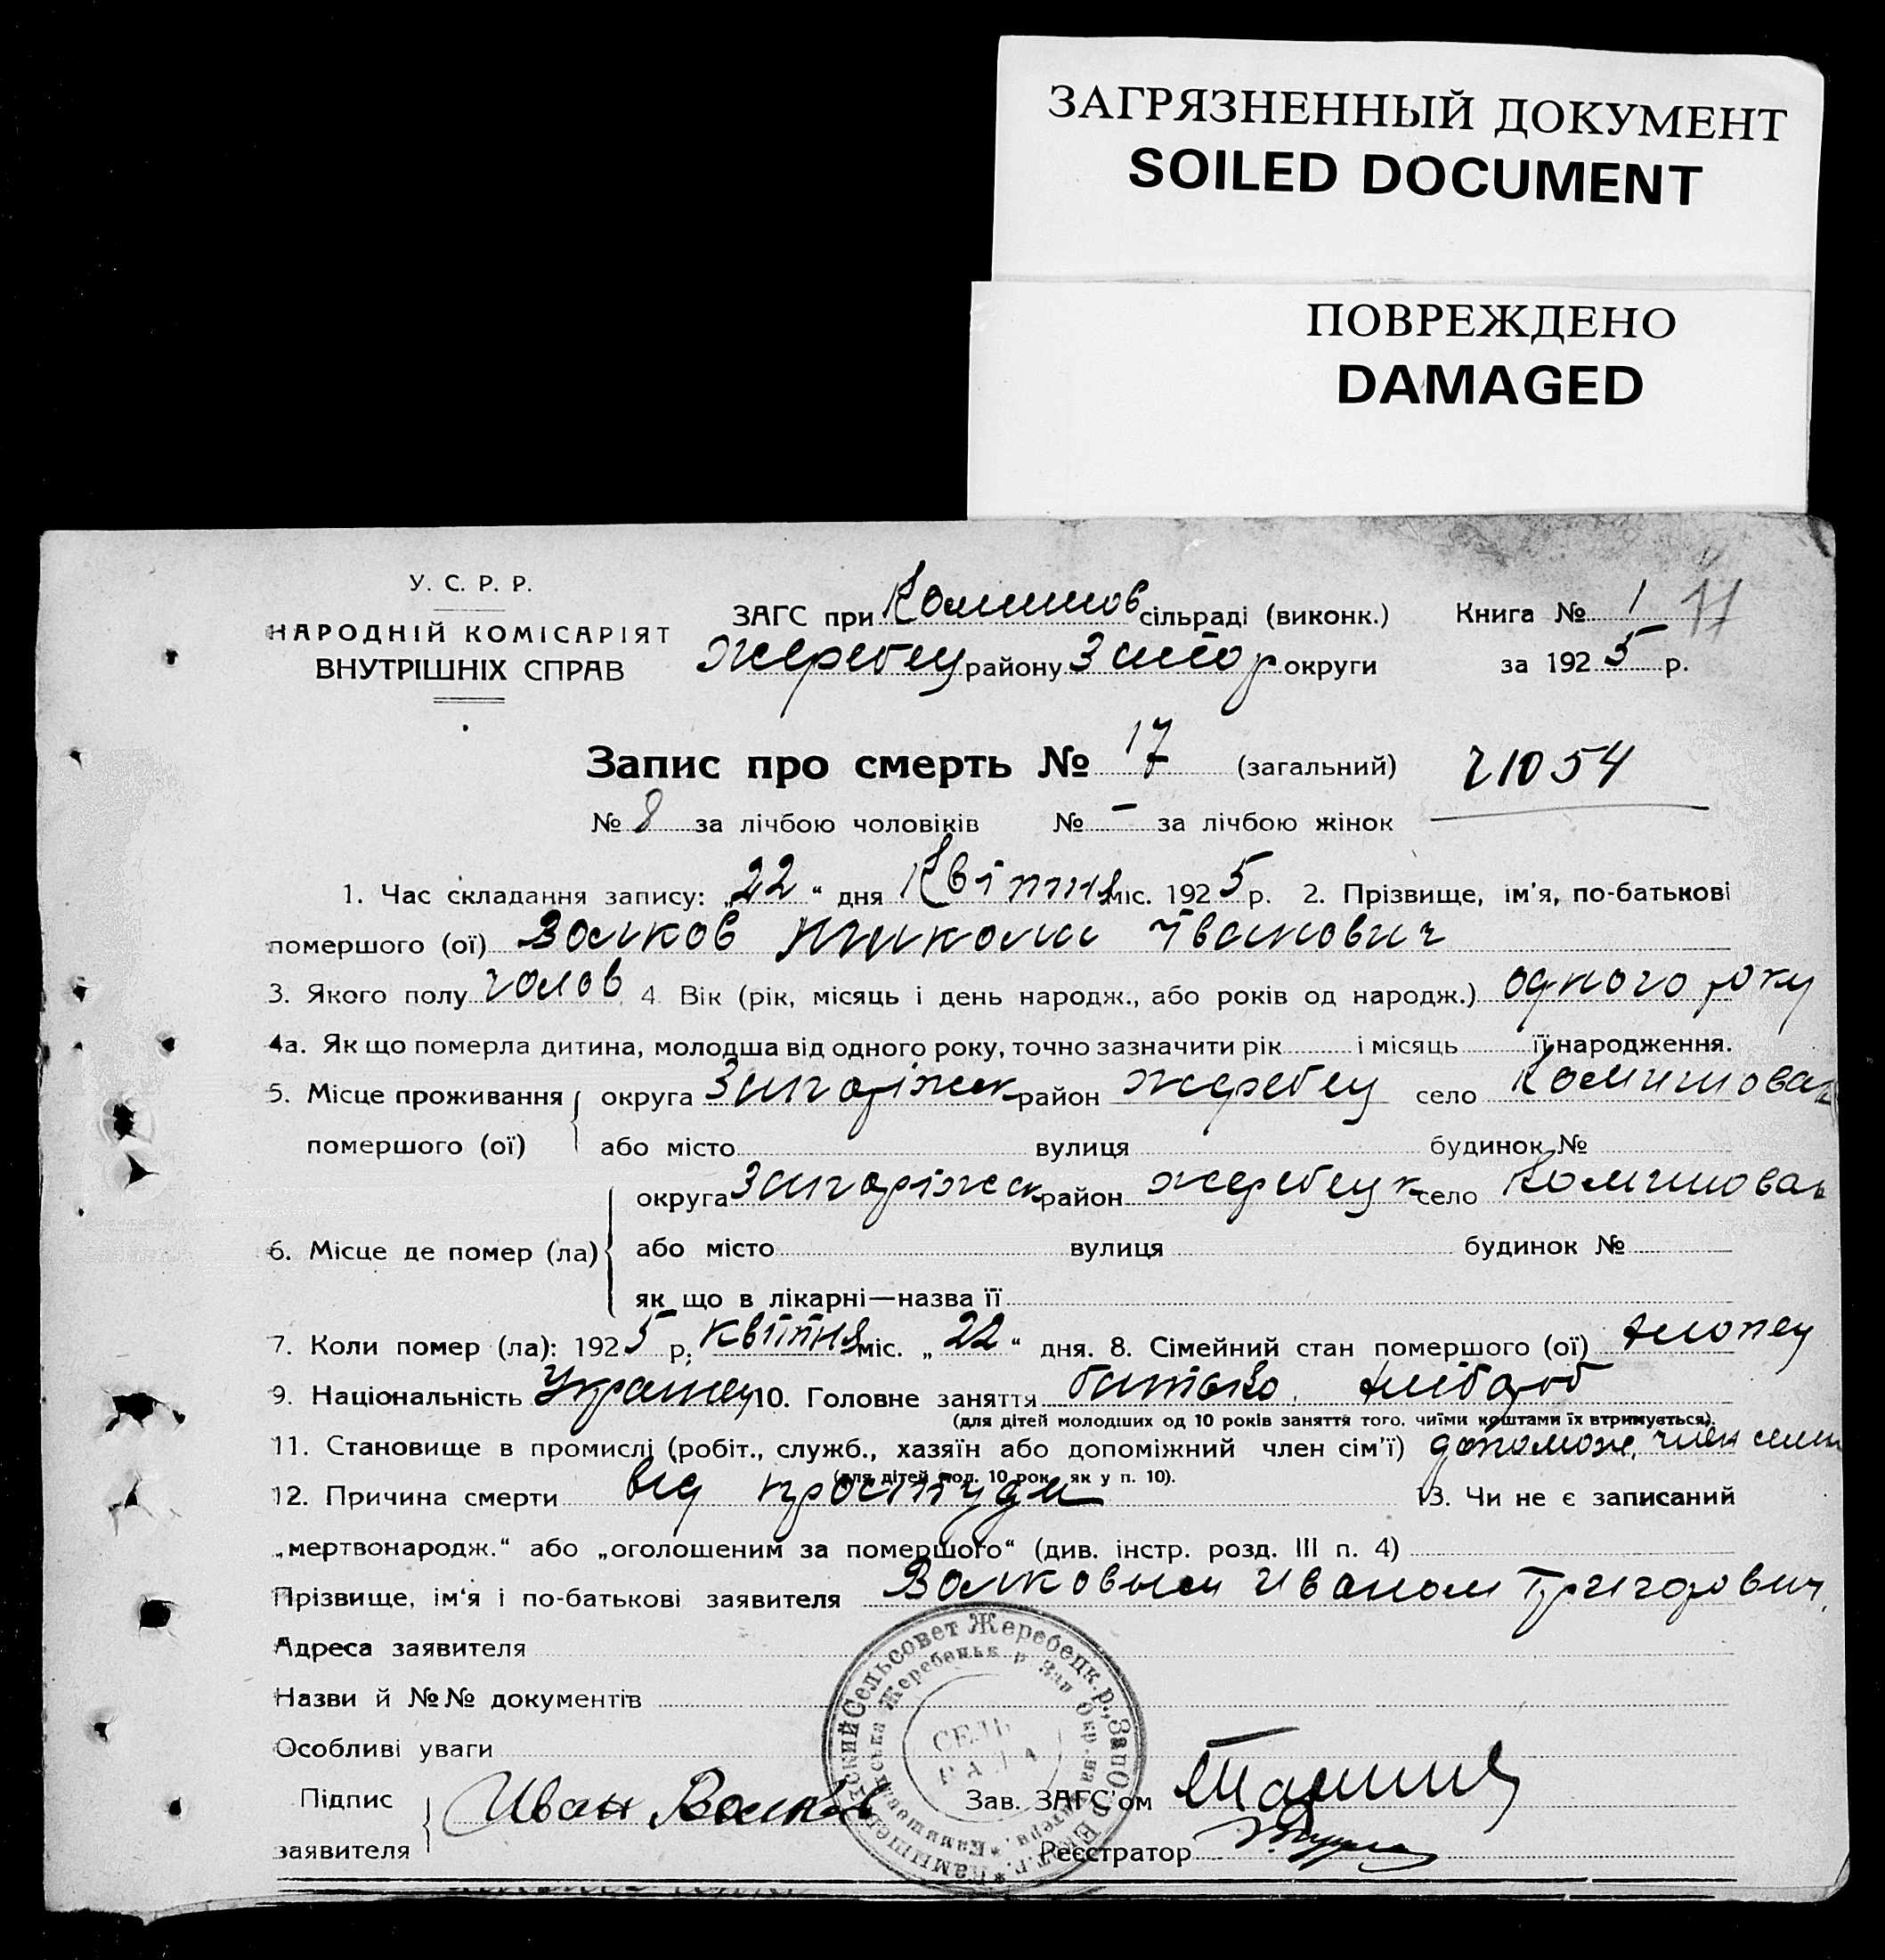 ЗАГРЯЗНЕННЫЙ ДОКУМЕНТ
SOILED DOCUMENT
ПОВРЕЖДЕНО
DAMAGED
У. С. Р. Р.
НАРОДНІЙ КОМІСАРІЯТ
ВНУТРІШНІХ СПРАВ
ЗАГС при Комишов сільраді (виконк.) Книга № 1 17
Жеребец району Запор округи за 1925 р.
Запис про смерть № 17 (загальний) 21054
№ 8 за лічбою чоловіків № – за лічбою жінок
1. Час складання запису: „22“ дня Квітня міс. 1925 р. 2. Прізвище, ім'я, по-батькові
помершого (ої) Волков Микола Іванович
3. Якого полу чолов 4. Вік (рік, місяць і день народж., або років од народж.) одного року
4а. Як що померла дитина, молодша від одного року, точно зазначити рік і місяць її народження.
5. Місце проживання округа Запоріжск район Жеребец село Комишовах
помершого (ої) або місто вулиця будинок №
округа Запоріжск район Жеребецк село Комишовах
6. Місце де помер (ла) або місто вулиця будинок №
як що в лікарні—назва її
7. Коли помер (ла): 1925 р. квітня міс. „22“ дня. 8. Сімейний стан помершого (ої) хлопец
9. Національність Украинец 10. Головне заняття батько, хлібороб
(для дітей молодших од 10 років заняття того, чиїми коштами їх втримується).
11. Становище в промислі (робіт., служб., хазяїн або допоміжний член сім'ї) допомож. член семи
(для дітей мол. 10 рок. як у п. 10).
12. Причина смерти від простуди 13. Чи не є записаний
„мертвонародж.“ або „оголошеним за помершого“ (див. інстр. розд. III п. 4)
Прізвище, ім'я і по-батькові заявителя Волковым Иваном Григорович.
Адреса заявителя
Назви й №№ документів
Особливі уваги
СЕЛЬ
РАДА
Підпис
заявителя
Иван Волков
Зав. ЗАГС'ом
Реєстратор